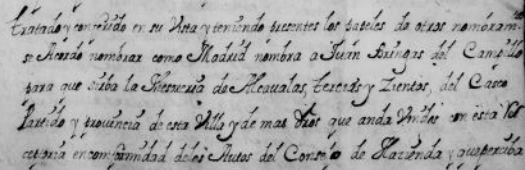 tratado y conferido en su Vista y teniendo presentes los papeles de otros nombram.tos
se Acordo nombrar como Madrid nombra a Juan Bringas del Campillo
para que sirba la thesoreria de Alcavalas, tercias y Zientos, del Casco
Partido y provincia de esta Villa y de mas dros que anda Vnidos con esta
ceptoria en conformidad de los Autos del Consejo de Hazienda y que perciba